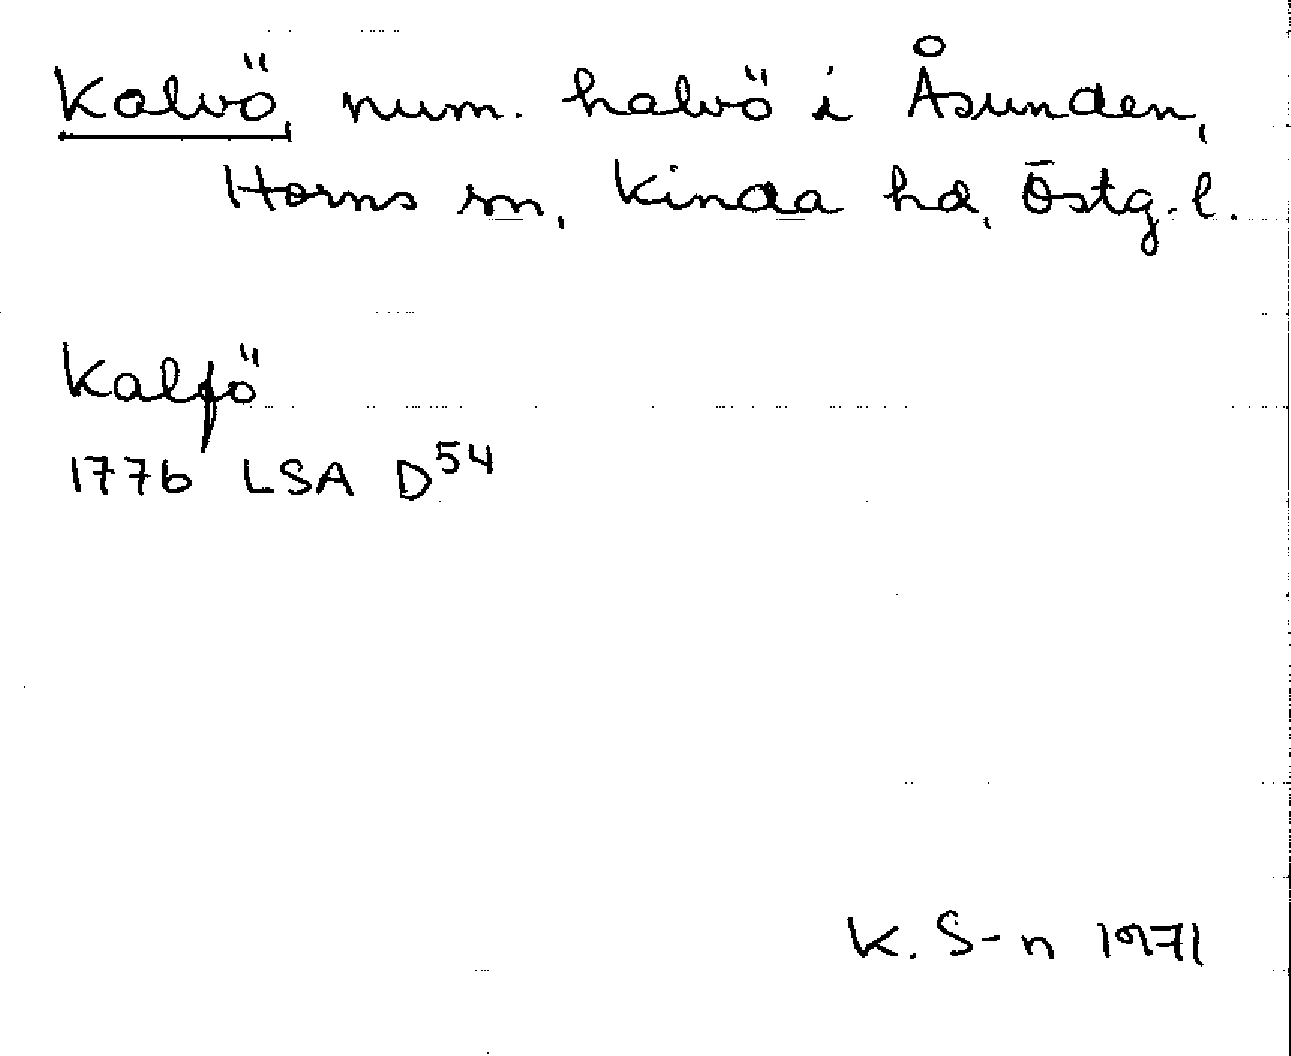 Kalvö, num. halvö i Åsunden,
Horns sn, Kinda hd, Östg. l.
Kalfö
1776 LSA D54
K. S-n 1971